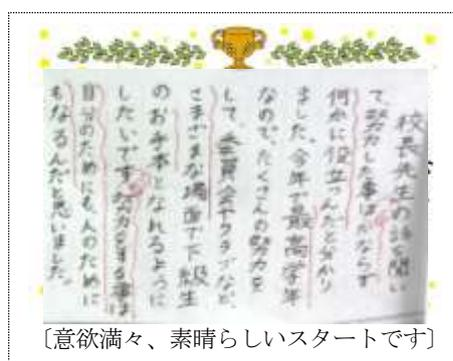 校長先生の話を聞い
て、努力した事はかならず
何かに役立つんだと分かり
ました。今年で最高学年
なので、たくさんの努力を
して、委員会やクラブなど、
さまざまな場面で下級生
のお手本となれるように
したいです。努力をする事は
自分のためにも、人のために
もなるんだと思いました。
〔意欲満々、素晴らしいスタートです〕